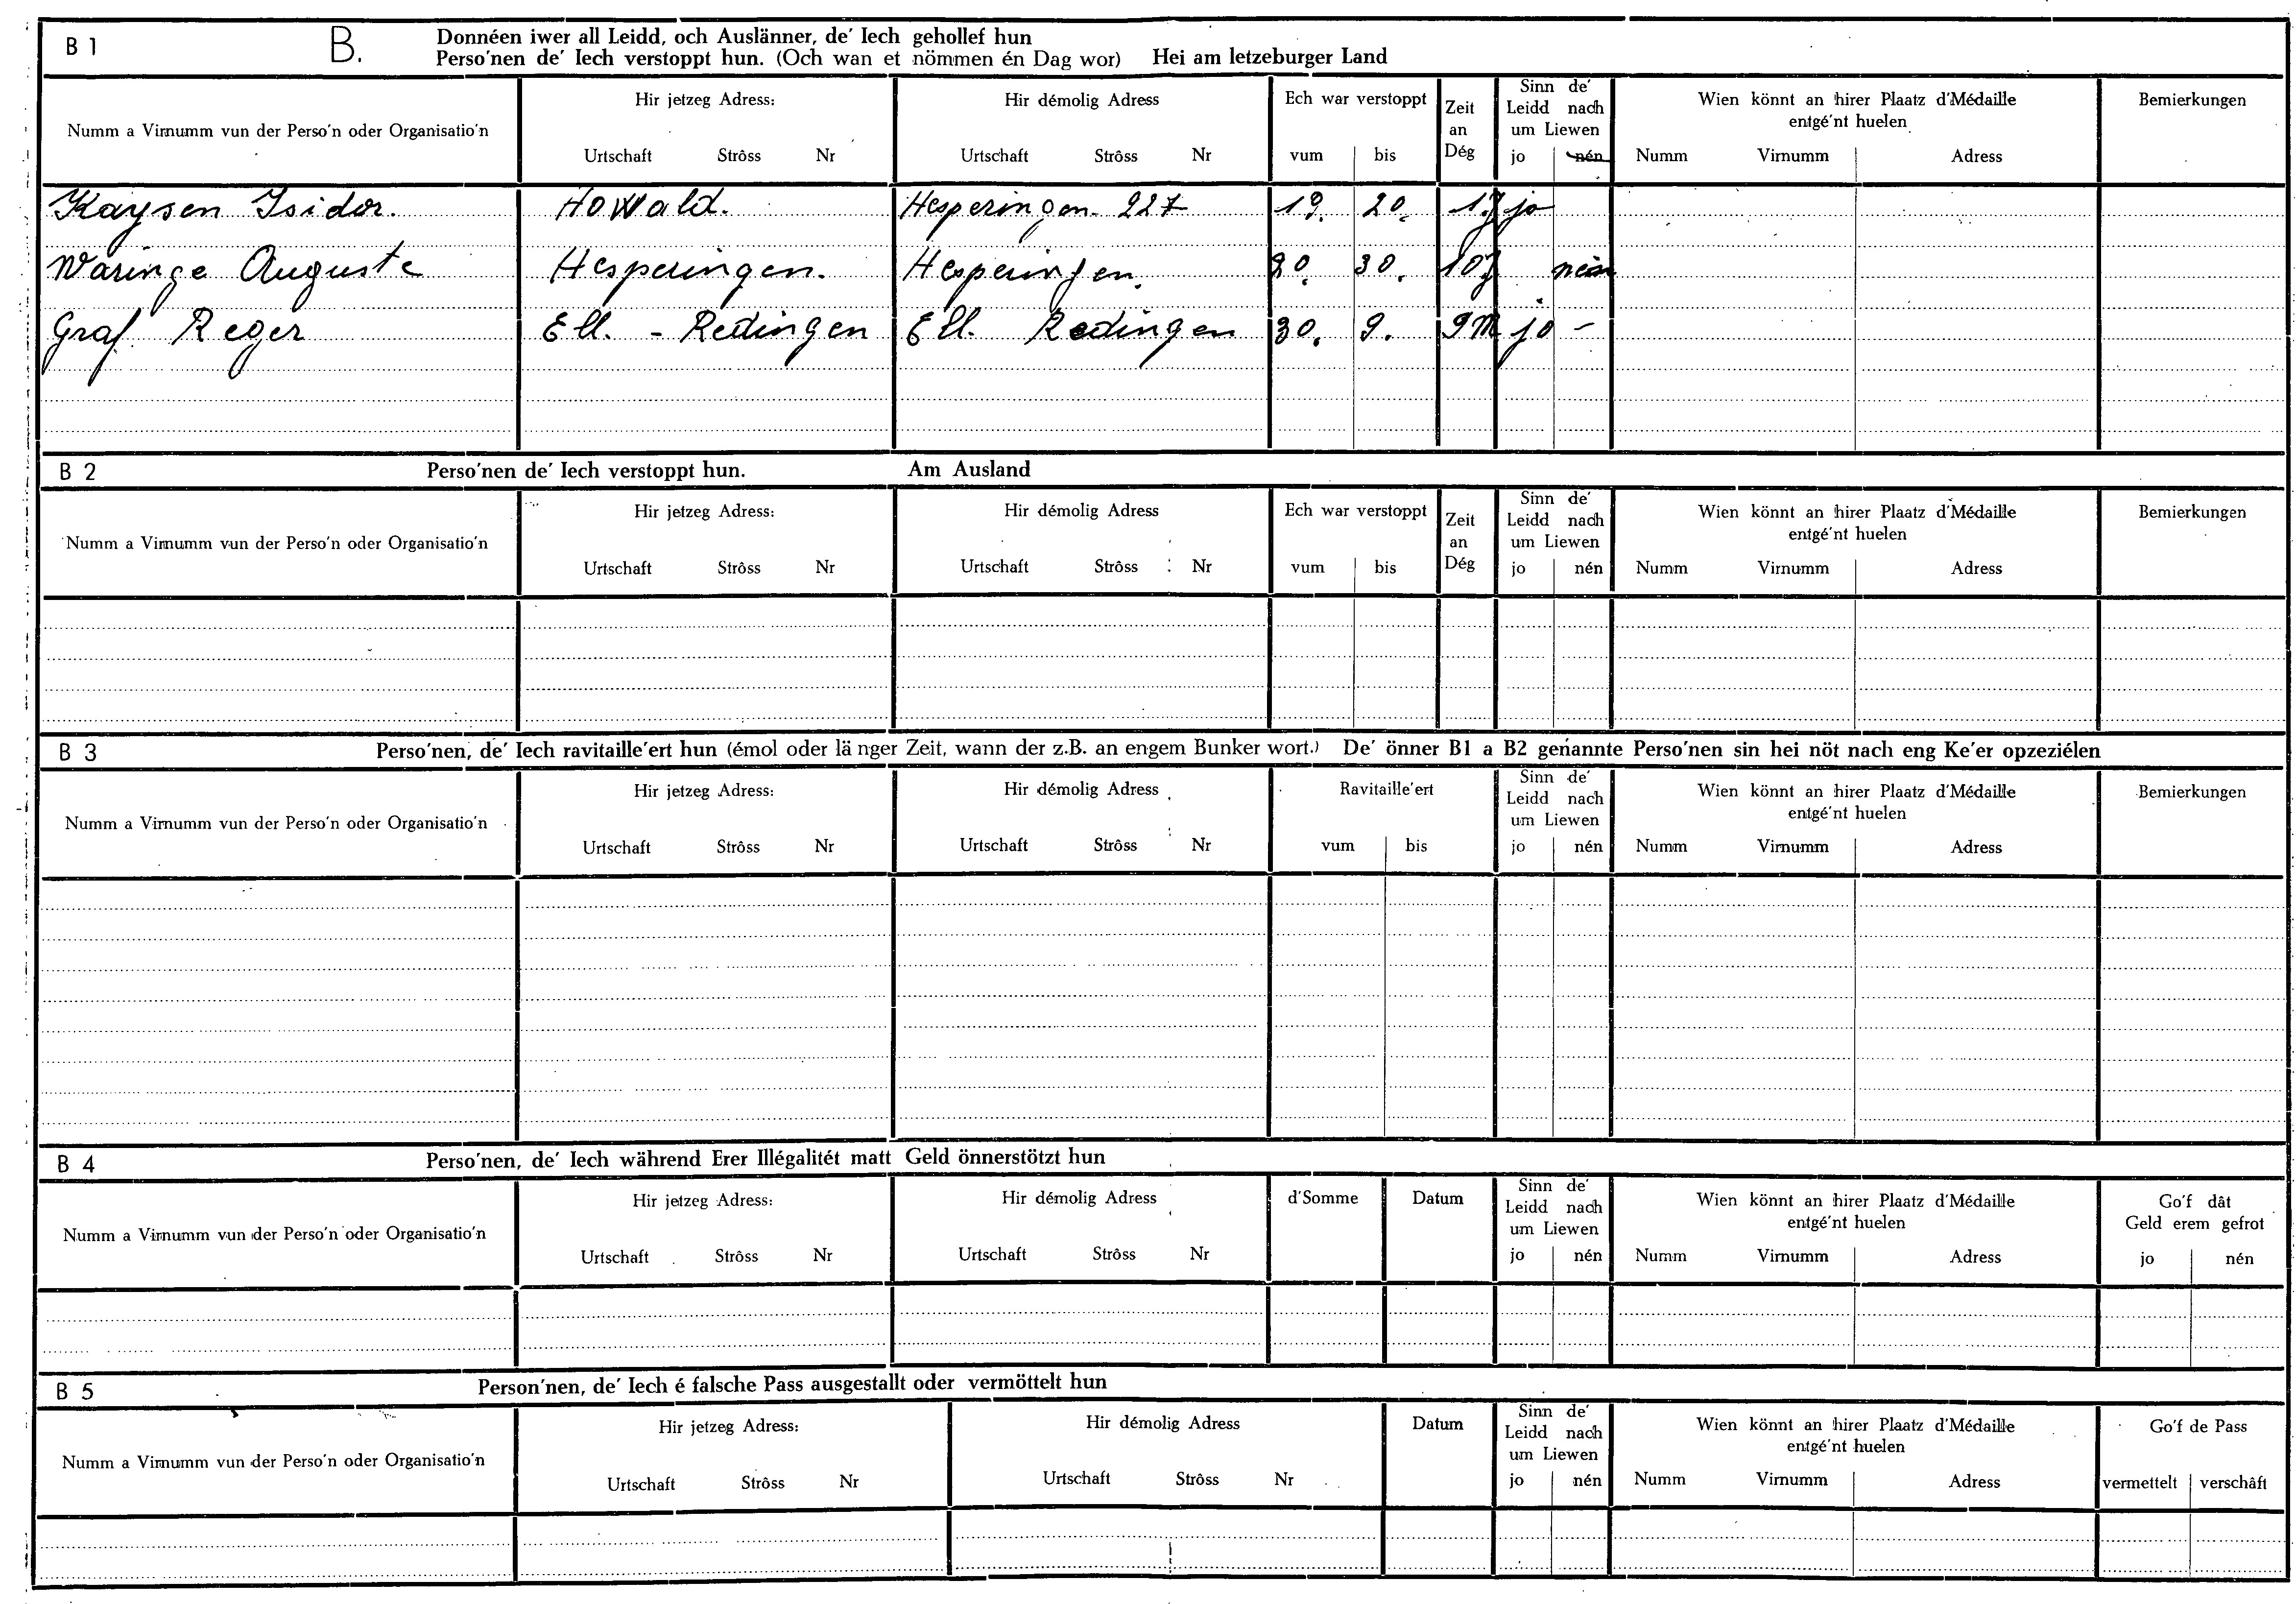 B 1 B. Donnéen iwer all Leidd, och Auslänner, de' Iech gehollef hun
Perso'nen de' Iech verstoppt hun. (Och wan et nömmen én Dag wor) Hei am letzeburger Land
Numm a Virnumm vun der Perso'n oder Organisatio'n
Hir jetzeg Adress:
Urtschaft Strôss Nr
Hir démolig Adress
Urtschaft Strôss Nr
Ech war verstoppt
vum bis
Zeit
an
Dég
Sinn de'
Leidd nach
um Liewen
jo nén
Wien könnt an hirer Plaatz d'Médaille
entgé'nt huelen
Numm Virnumm Adress
Bemierkungen
Kaysen Isidor. Howald. Hesperingen 227 19. 20. 1J jo
Waringe Auguste Hesperingen. Hesperingen. 20. 30. 10J nein
Graf Reger Ell. - Redingen Ell. Redingen 30. 9. 9M jo -
B 2 Perso'nen de' Iech verstoppt hun. Am Ausland
Numm a Virnumm vun der Perso'n oder Organisatio'n
Hir jetzeg Adress:
Urtschaft Strôss Nr
Hir démolig Adress
Urtschaft Strôss Nr
Ech war verstoppt
vum bis
Zeit
an
Dég
Sinn de'
Leidd nach
um Liewen
jo nén
Wien könnt an hirer Plaatz d'Médaille
entgé'nt huelen
Numm Virnumm Adress
Bemierkungen
B 3 Perso'nen, de' Iech ravitaille'ert hun (émol oder länger Zeit, wann der z.B. an engem Bunker wort.) De' önner B1 a B2 genannte Perso'nen sin hei nöt nach eng Ke'er opzeziélen
Numm a Virnumm vun der Perso'n oder Organisatio'n
Hir jetzeg Adress:
Urtschaft Strôss Nr
Hir démolig Adress
Urtschaft Strôss Nr
Ravitaille'ert
vum bis
Sinn de'
Leidd nach
um Liewen
jo nén
Wien könnt an hirer Plaatz d'Médaille
entgé'nt huelen
Numm Virnumm Adress
Bemierkungen
B 4 Perso'nen, de' Iech während Erer Illégalitét matt Geld önnerstötzt hun
Numm a Virnumm vun der Perso'n oder Organisatio'n
Hir jetzeg Adress:
Urtschaft Strôss Nr
Hir démolig Adress
Urtschaft Strôss Nr
d'Somme
Datum
Sinn de'
Leidd nach
um Liewen
jo nén
Wien könnt an hirer Plaatz d'Médaille
entgé'nt huelen
Numm Virnumm Adress
Go'f dât
Geld erem gefrot
jo nén
B 5 Person'nen, de' Iech é falsche Pass ausgestallt oder vermöttelt hun
Numm a Virnumm vun der Perso'n oder Organisatio'n
Hir jetzeg Adress:
Urtschaft Strôss Nr
Hir démolig Adress
Urtschaft Strôss Nr
Datum
Sinn de'
Leidd nach
um Liewen
jo nén
Wien könnt an hirer Plaatz d'Médaille
entgé'nt huelen
Numm Virnumm Adress
Go'f de Pass
vermettelt verschâft